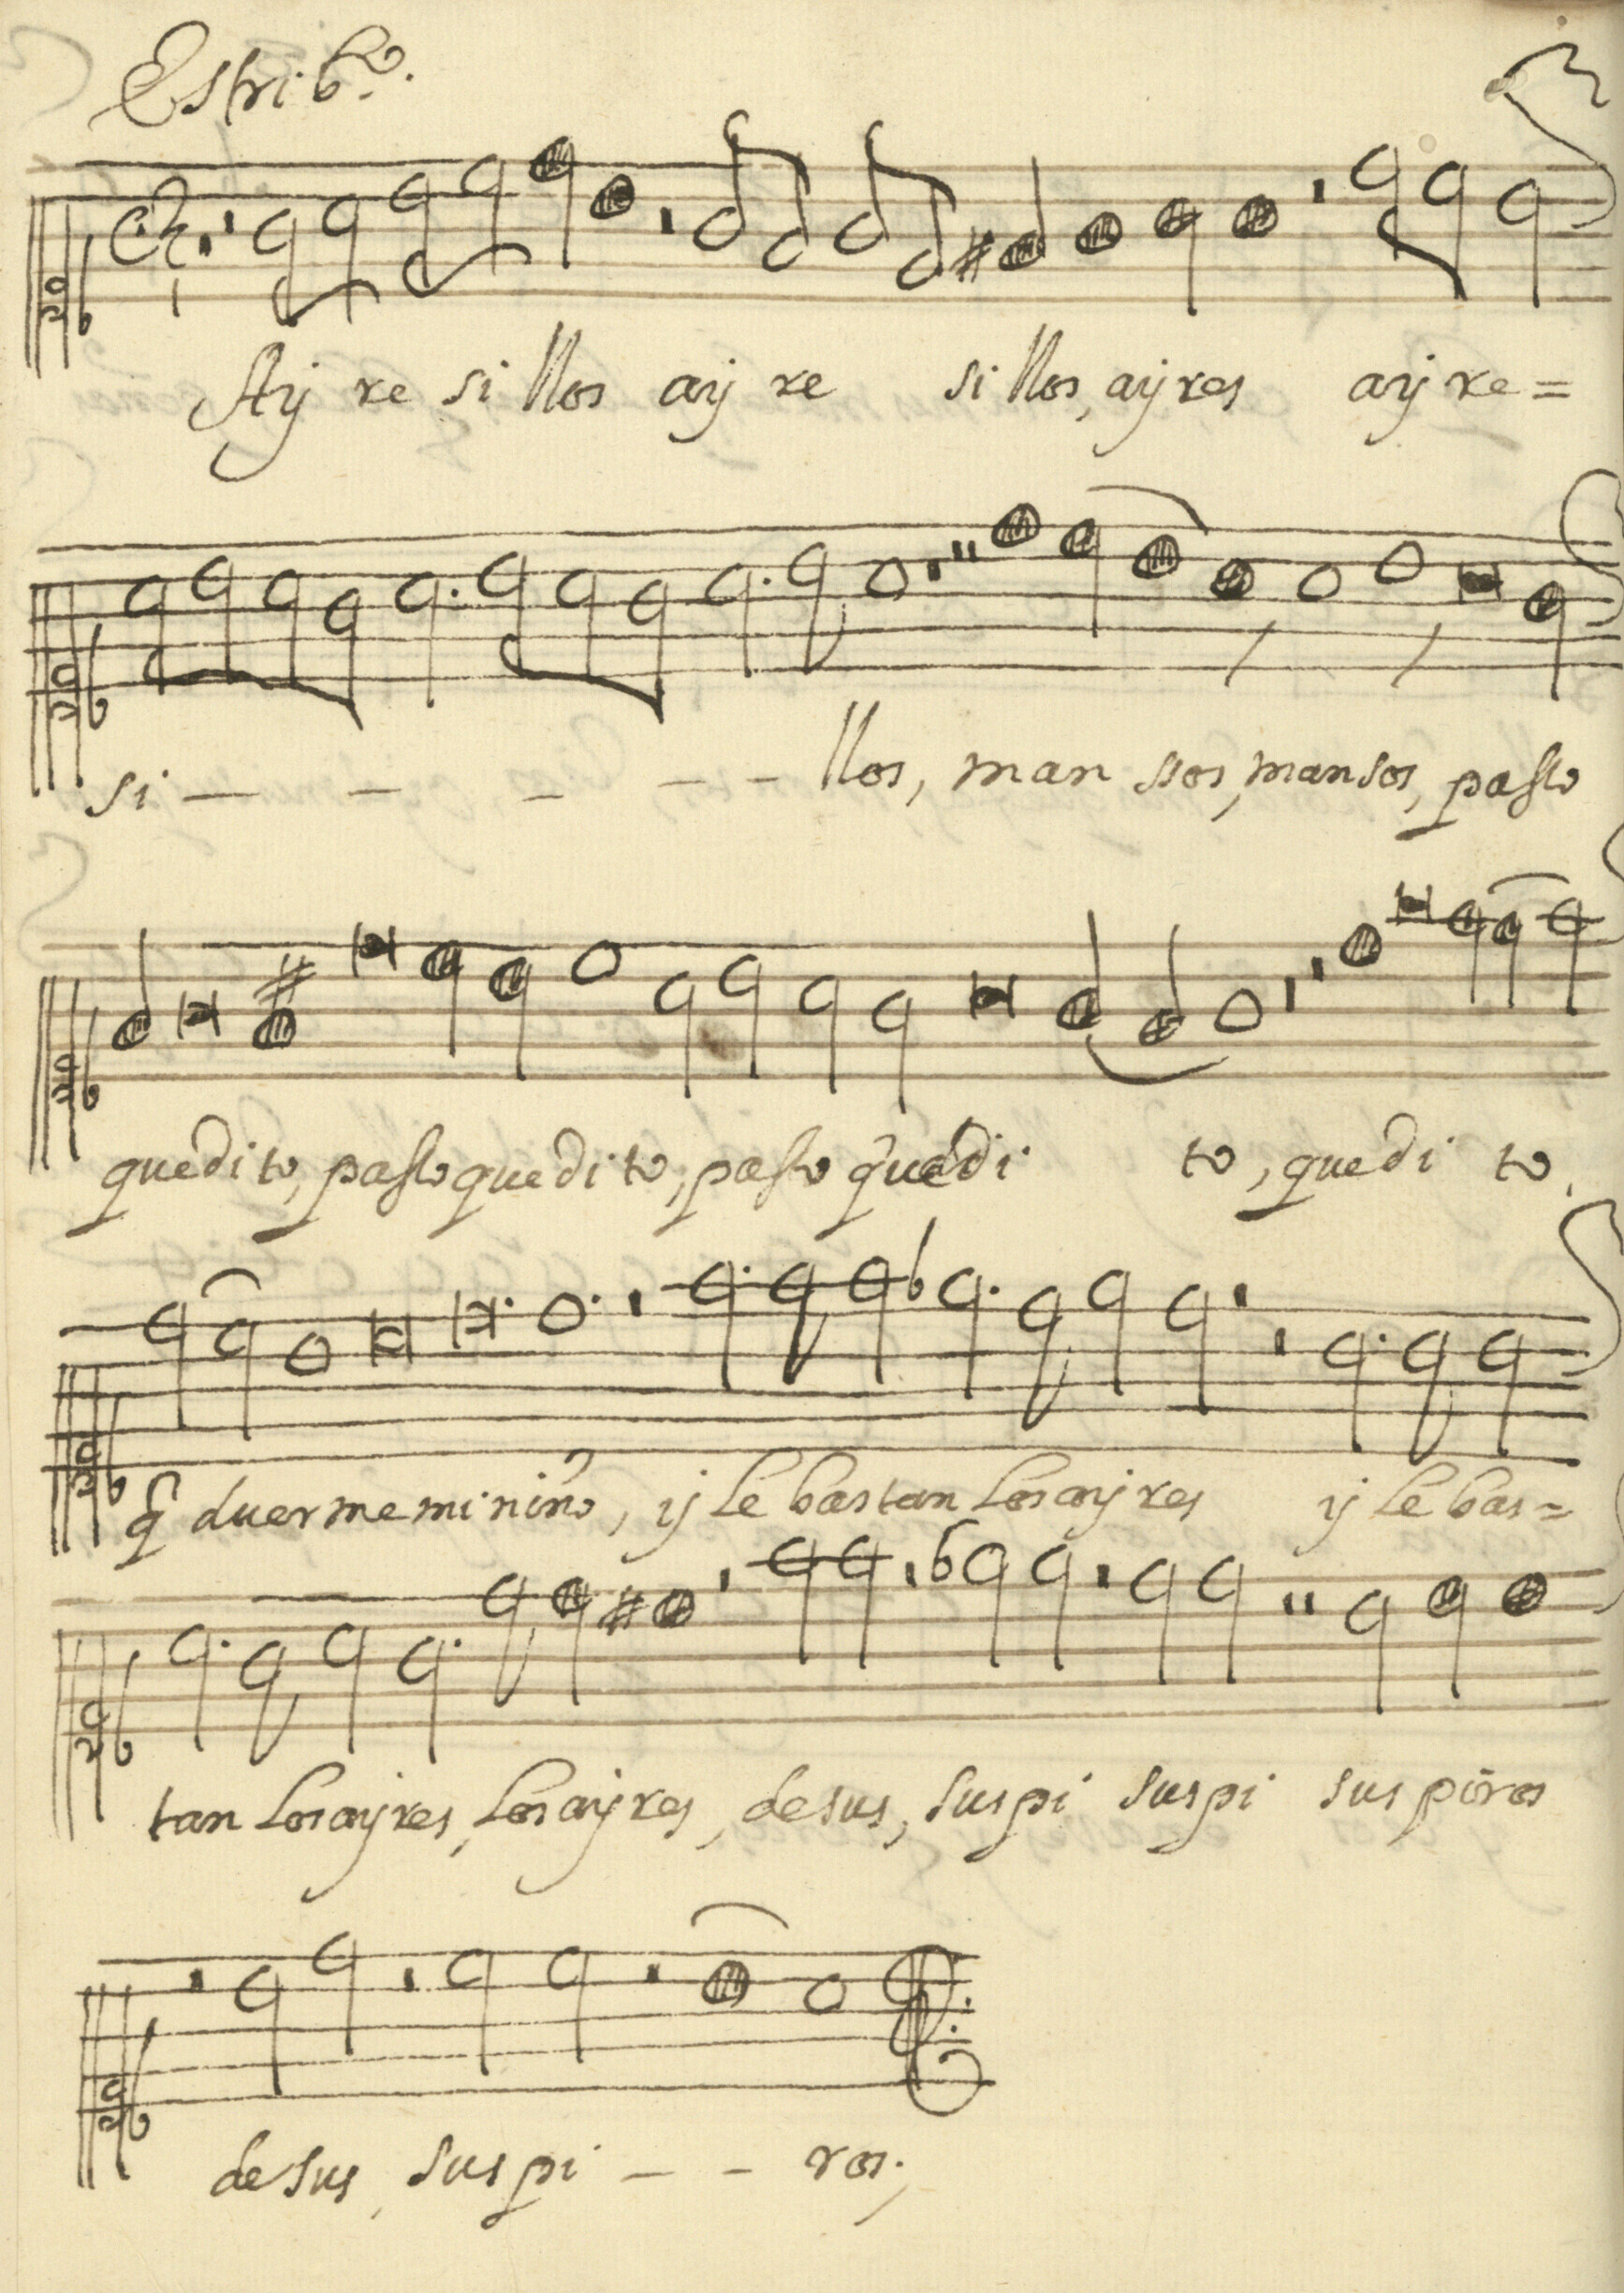 Estribo.
Ay re si llos ay re si llos, ayres ay re=
si — — — — — llos, man ssos, mansos, passo
quedito, passo quedito, passo quedi to, quedi to.
q̃ duerme mi niño, y le bastan los ayres y le bas=
tan los ayres, los ayres, de sus, suspi suspi suspiros
de sus, suspi — — ros;